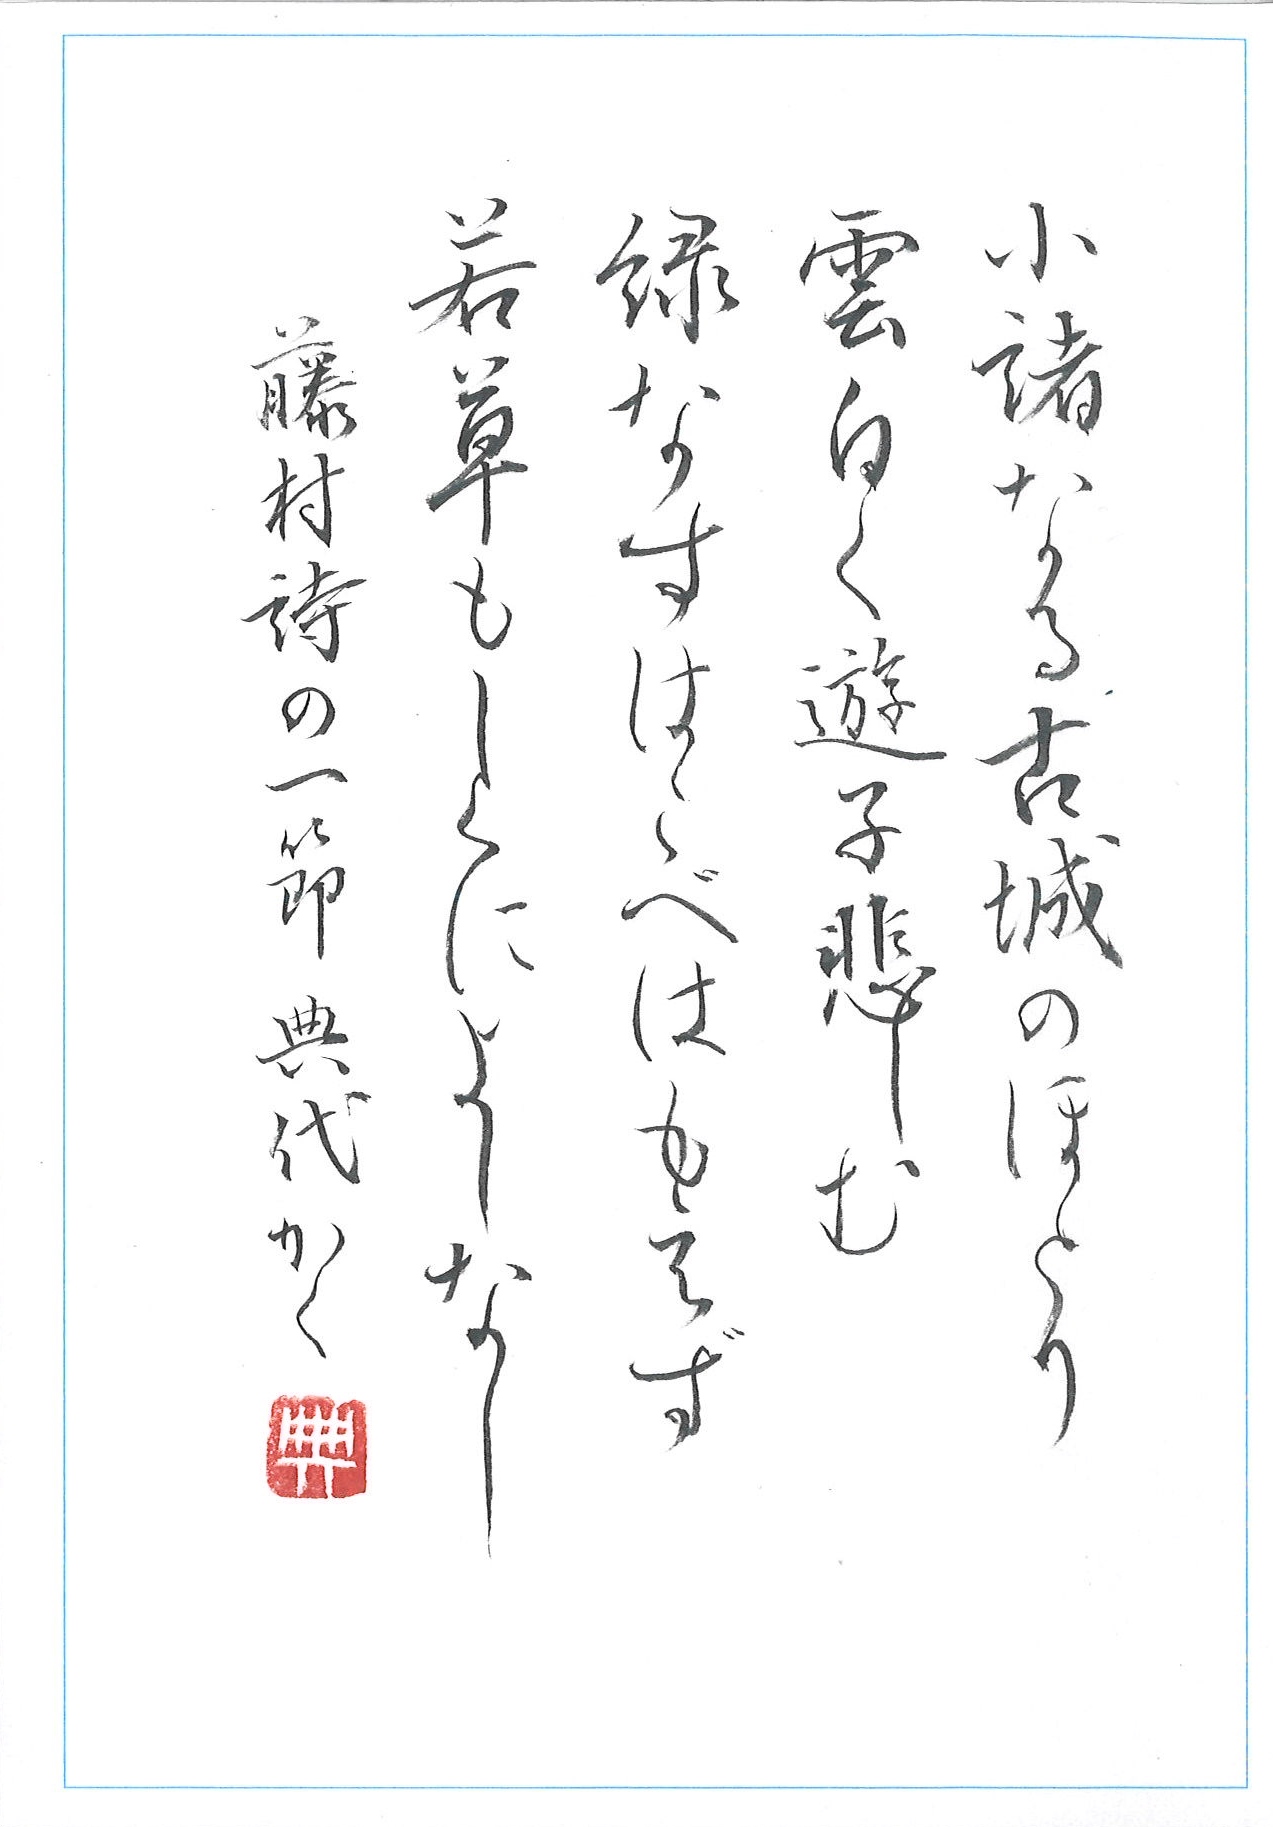 小諸なる古城のほとり
雲白く遊子悲しむ
緑なすはこべはもえず
若草もしくによしなし
藤村詩の一節 典代かく
典